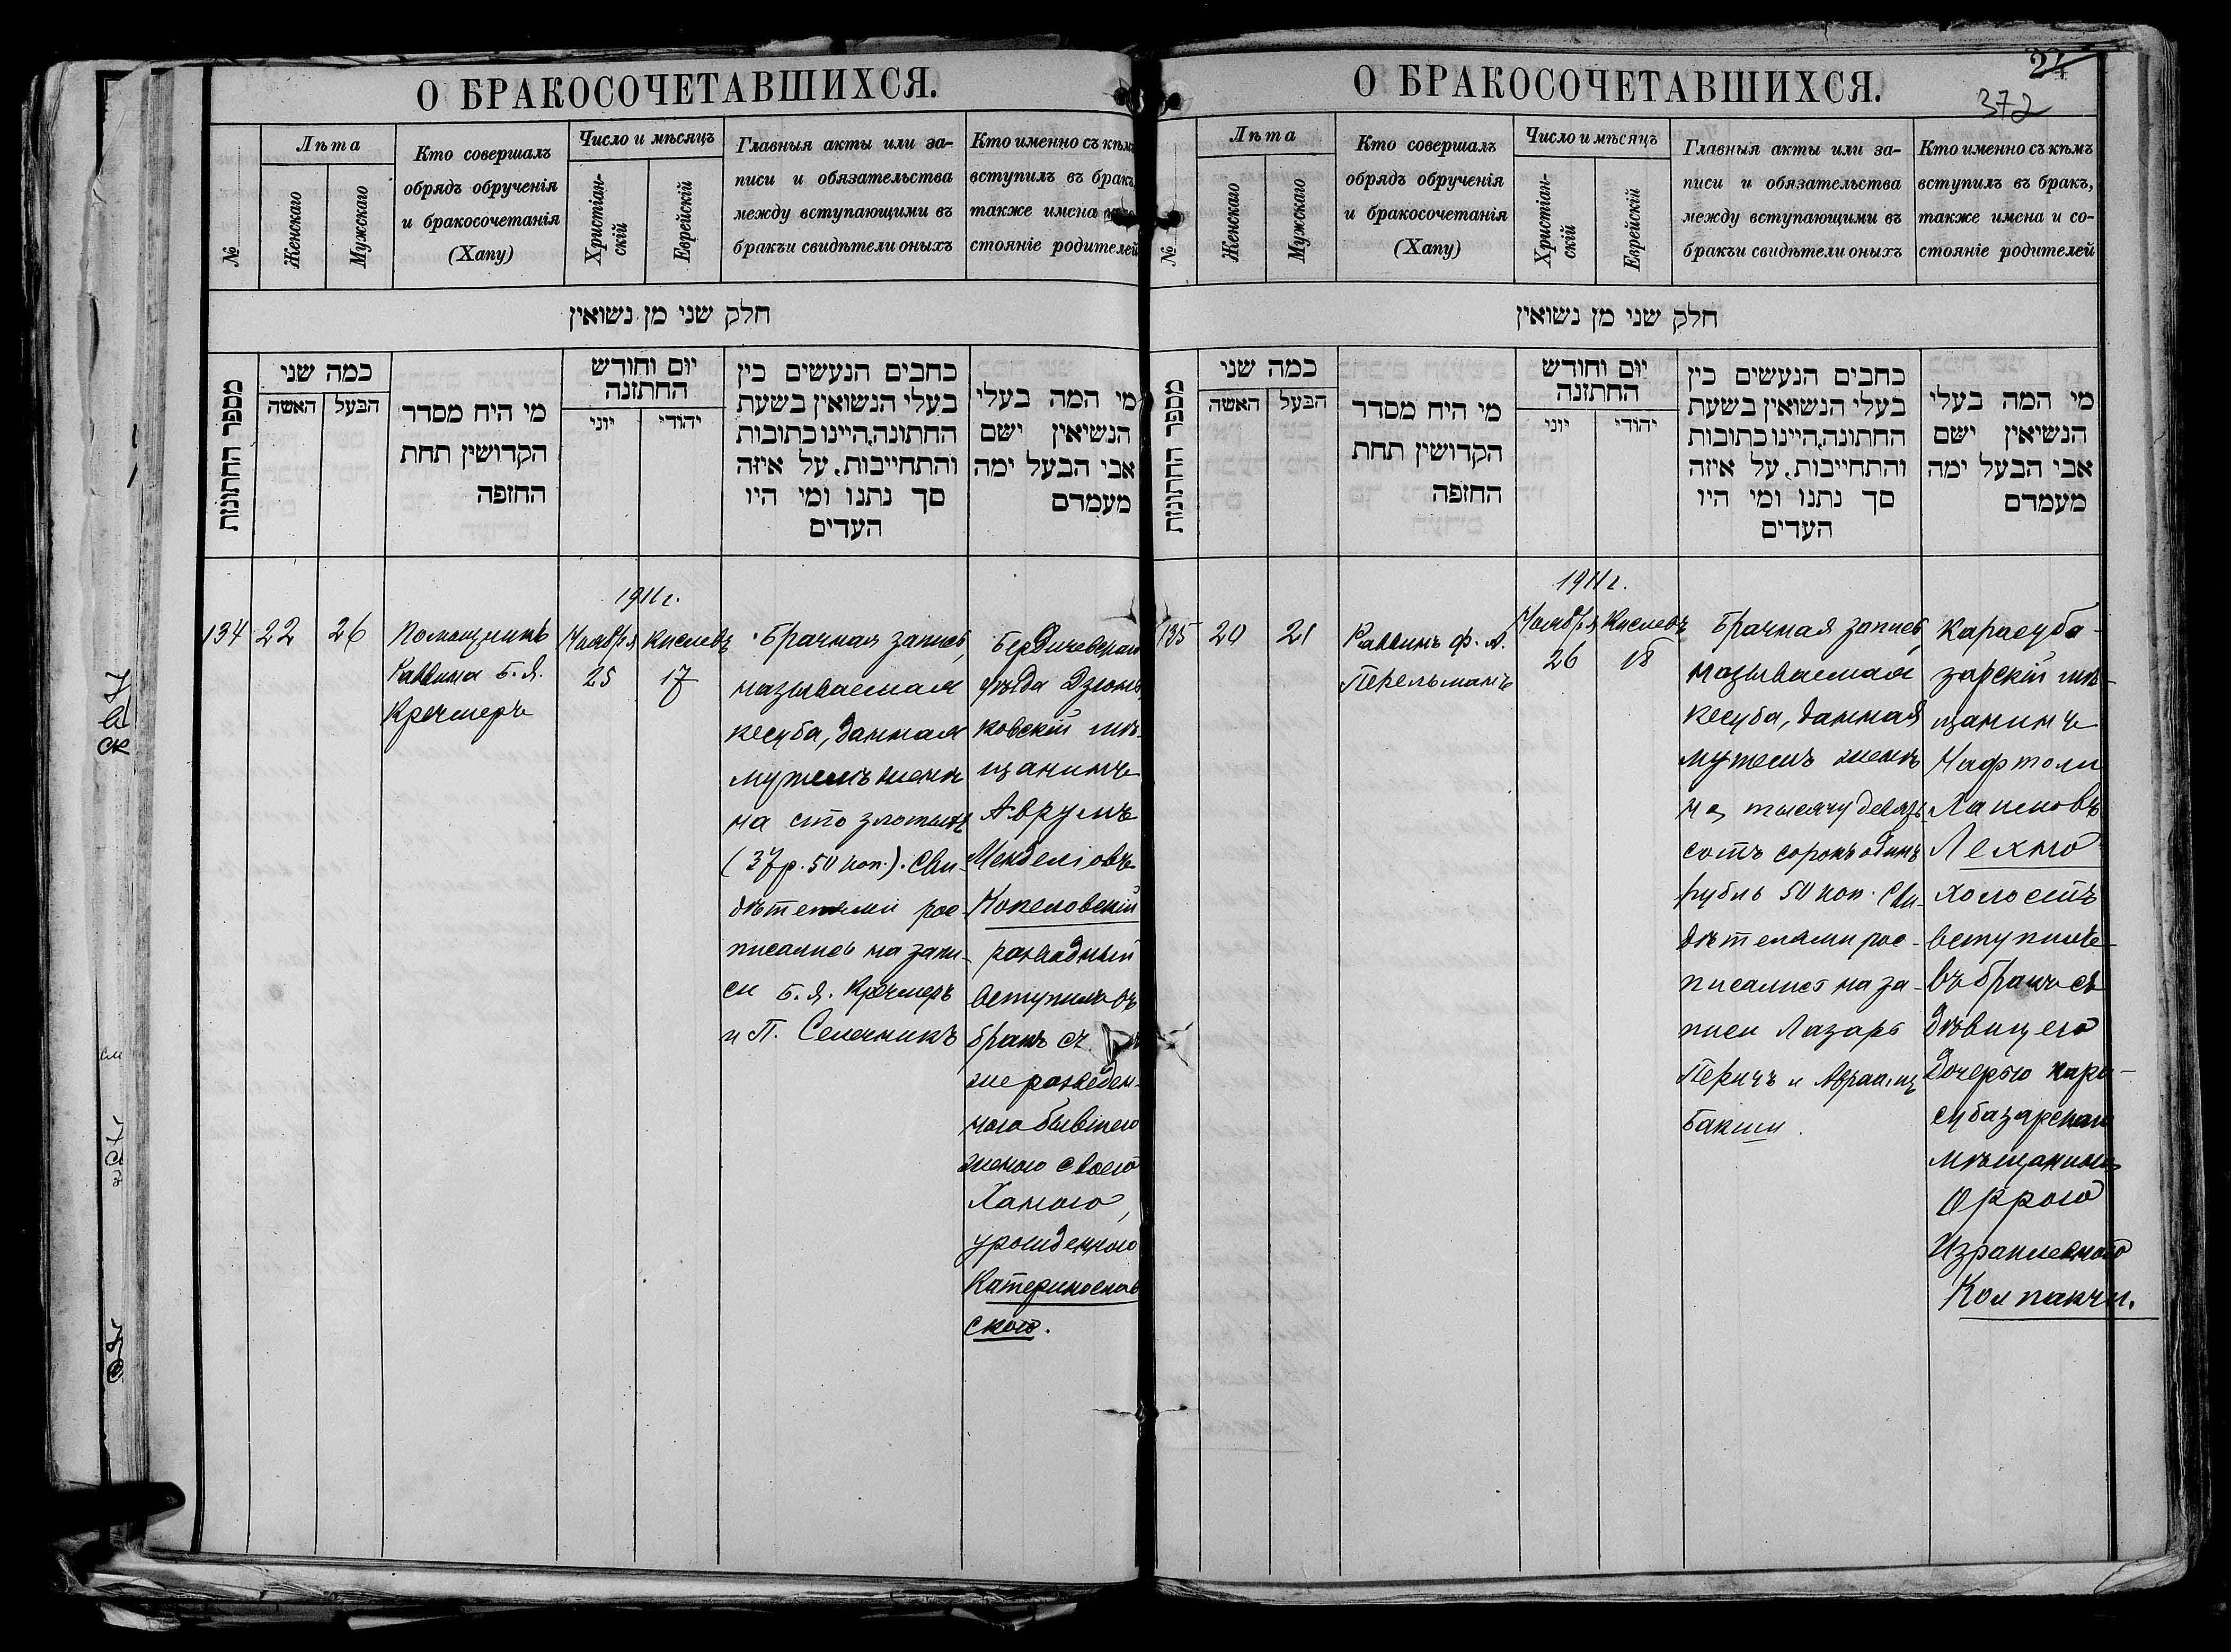 О БРАКОСОЧЕТАВШИХСЯ.
№
Лѣта
Женскаго
Мужскаго
Кто совершалъ
обрядъ обрученія
и бракосочетанія
(Хапу)
Число и мѣсяцъ
Христіан-
скій
Еврейскій
Главныя акты или за-
писи и обязательства
между вступающими въ
бракъи свидѣтели оныхъ
Кто именно съ кѣмъ
вступилъ въ бракъ,
также имена
стояніе родителей
חלק שני מן נשואין
מספר החתונות
כמה שני
האשה
הבעל
מי היח מסדר
הקדושין תחת
החופה
יום וחודש
החתונה
יוני
יהודי
כחבים הנעשים כין
בעלי הנשואין בשעת
החתונה,היינו כתובות
והתחייבות, על איזה
סך נתנו ומי היו
העדים
מי המה בעלי
הנשיאין ישם
אבי הבעל ימה
מעמדם
134
22
26
Помощникъ
Раввина Б. Я.
Кречмеръ
1911 г.
Ноября
25
Кислевъ
17
Брачная запись,
называемая
кесуба, данная
мужемъ женѣ
на сто злотыхъ
(37 р. 50 коп.). Сви-
дѣтелями рос-
писались на запи-
си Б. Я. Кречмеръ
и П. Селечникъ
Бердичевскаго
уѣзда Дзюнь
ковскій мѣ-
щанинъ
Аврумъ
Менделіовъ
Копеловскій
разводный
вступилъ въ
бракъ съ
же разведен-
ною бывшею
женою своею
Ханою,
урожденною
Катеринослав
скою.
О БРАКОСОЧЕТАВШИХСЯ.
27
372
№
Лѣта
Женскаго
Мужскаго
Кто совершалъ
обрядъ обрученія
и бракосочетанія
(Хапу)
Число и мѣсяцъ
Христіан-
скій
Еврейскій
Главныя акты или за-
писи и обязательства
между вступающими въ
бракъи свидѣтели оныхъ
Кто именно съ кѣмъ
вступилъ въ бракъ,
также имена и со-
стояніе родителей
חלק שני מן נשואין
מספר החתונות
כמה שני
האשה
הבעל
מי היח מסדר
הקדושין תחת
החופה
יום וחודש
החתונה
יוני
יהודי
כחבים הנעשים כין
בעלי הנשואין בשעת
החתונה,היינו כתובות
והתחייבות, על איזה
סך נתנו ומי היו
העדים
מי המה בעלי
הנשיאין ישם
אבי הבעל ימה
מעמדם
135
20
21
Раввинъ Ф. А.
Перельманъ
1911 г.
Ноября
26
Кислевъ
18
Брачная запись,
называемая
кесуба, данная
мужемъ женѣ
на тысячу девять-
сотъ сорокъ одинъ
рубль 50 коп. Сви-
дѣтелями рос-
писались на за-
писи Лазарь
Перичъ и Авраамъ
Бакши.
Карасуба-
зарскій мѣ-
щанинъ
Нафтоли
Хаимовъ
Лехно
холостъ
вступилъ
въ бракъ съ
дѣвицею
дочерью кара-
субазарскаго
мѣщанина
Оррою
Израилевною
Колпакчи.